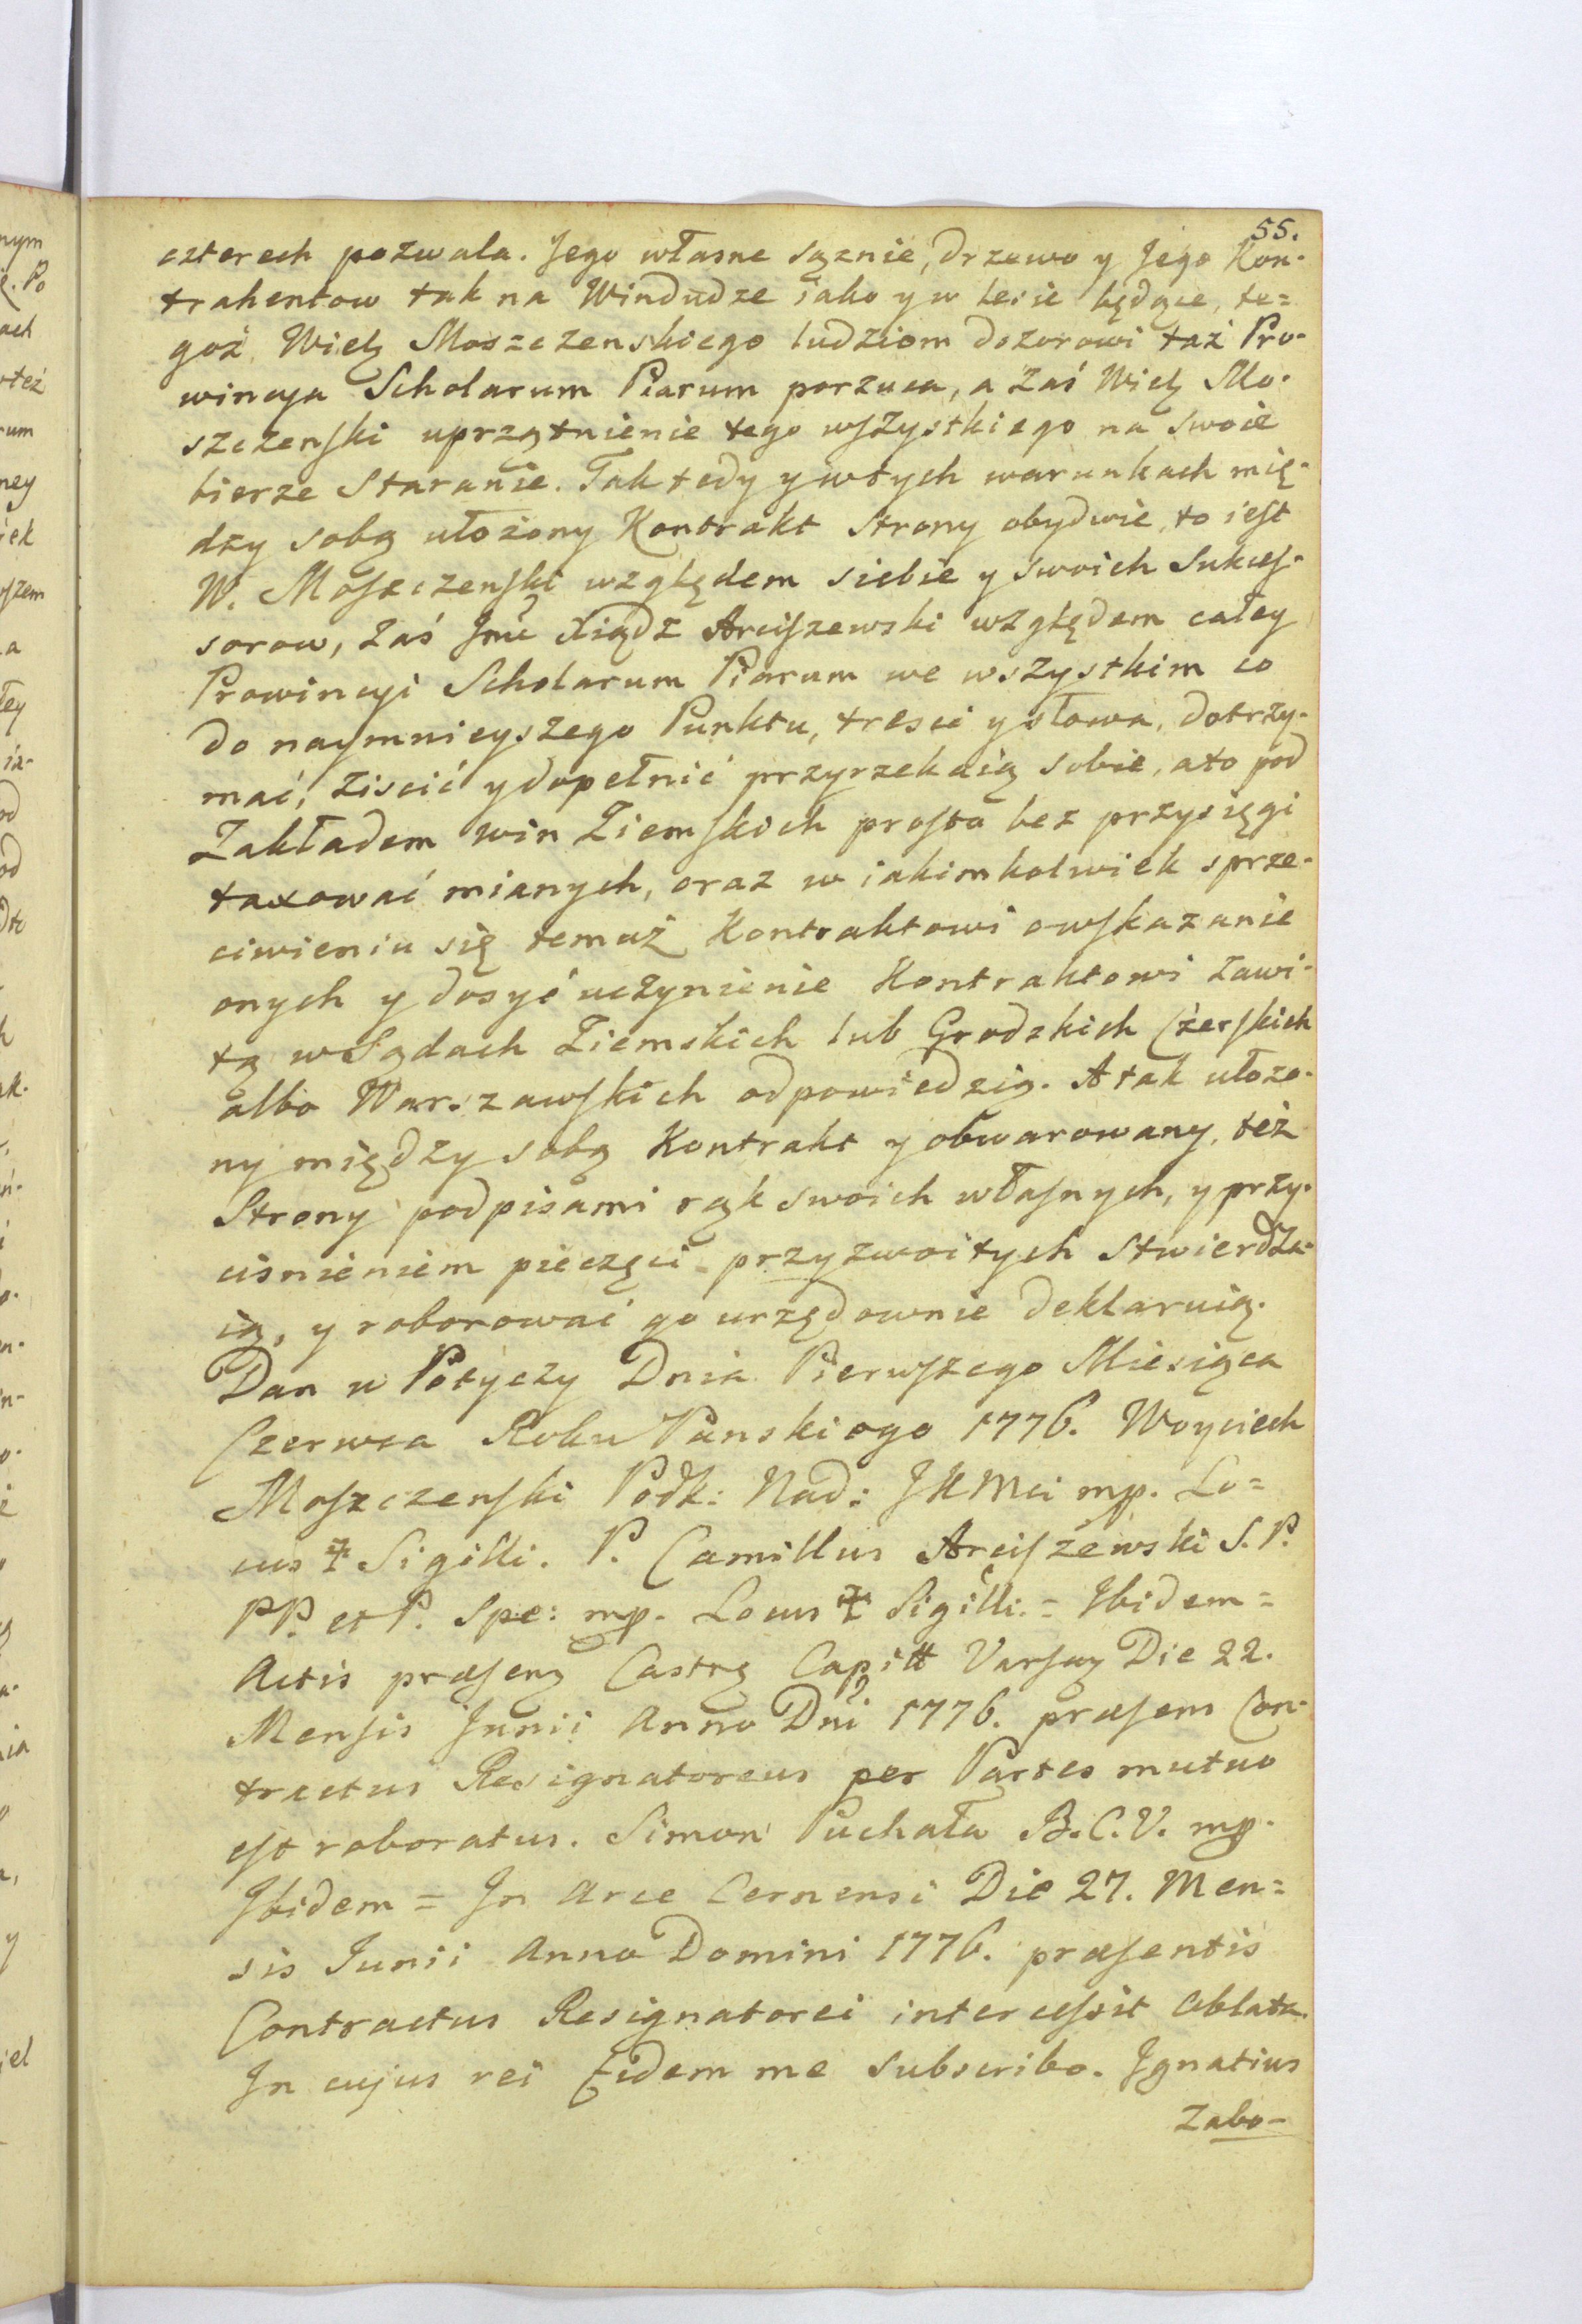 55.
czterech pozwala. Jego własne sąznie, drzewo y Jego Kon-
trahentow tak na Windudze iako y w lesie będące, te=
goż Wielg Moszczenskiego ludziom dozorowi taż Pro-
wincya Scholarum Piarum porzuca, a zaś Wielg Mo-
szczenski uprzątnienie tego wszystkiego na swoie
bierze Staranie. Tak tedy y w tych warunkach mię-
dzy sobą ułożony Kontrakt Strony obydwie, to iest
W. Moszczenski względem siebie y swoich Sukces-
sorow, zaś Jmć Xiądz Arciszewski względem całey
Prowincyi Scholarum Piarum we wszystkim co
do naymnieyszego Punktu, tresci y słowa, dotrzy-
mać, ziscić y dopełnić przyrzekaią sobie, a to pod
Zakładem win Ziemskich prosta bez przysięgi
taxować mianych, oraz w iakimkolwiek sprze-
ciwieniu się temuż Kontraktowi o wskazanie
onych y dosyć uczynienie Kontraktowi zawi-
tą w Sądach Ziemskich lub Grodzkich Czerskich
albo Warszawskich odpowiedzią. A tak ułożo-
ny między sobą Kontrakt y obwarowany, też
Strony podpisami rąk swoich własnych, y przy-
cisnieniem pieczęci przyzwoitych Stwierdza-
ią, y roborować go urzędownie deklaruią.
Dan w Potyczy Dnia Pierwszego Miesiąca
Czerwca Roku Panskiego 1776. Woyciech
Moszczenski Podk: Nad: JKMci mp. Lo=
cus ‡ Sigilli. P. Camillus Arciszewski S. P.
PP. et P. Spe: mp. Locus ‡ Sigilli. = Ibidem =
Actis præseng Castrg Capitt Varsag Die 22.
Mensis Junii Anno Dni 1776. præsens Con-
tractus Resignatoreus per Partes mutuo
est roboratus. Simon Puchała B. C. V. mp.
Ibidem = In Arce Cernensi Die 27. Men=
sis Junii Anno Domini 1776. præsentis
Contractus Resignatorei intercessit Oblata.
In cujus rei fidem me subscribo. Ignatius
Zabo-